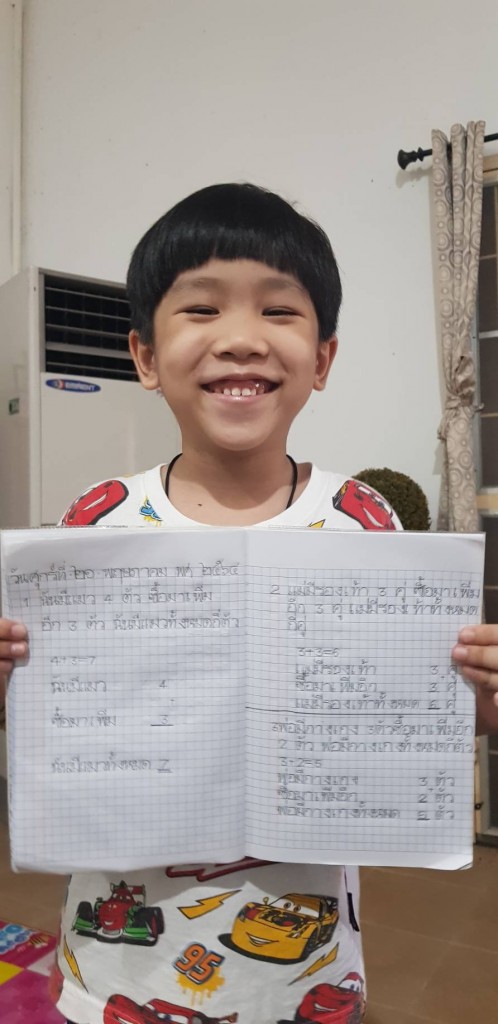 EMINENT
วันศุกร์ที่ ๒๐ พฤษภาคม พศ ๒๕๖๕
1 ฉันมีแมว 4 ตัว ซื้อมาเพิ่ม
อีก 3 ตัว ฉันมีแมวทั้งหมดกี่ตัว
4+3=7
ฉันมีแมว 4
+
ซื้อมาเพิ่ม 3
ทั้งหมด 7
2 แม่มีรองเท้า 3 คู่ ซื้อมาเพิ่ม
อีก 3 คู่ แม่มีรองเท้าทั้งหมด
กี่คู่
3+3=6
แม่มีรองเท้า 3 คู่
+
ซื้อมาเพิ่มอีก 3 คู่
แม่มีรองเท้าทั้งหมด 6 คู่
3พ่อมีกางเกง 3ตัวซื้อมาเพิ่มอีก
2 ตัว พ่อมีกางเกงทั้งหมดกี่ตัว
3+2=5
พ่อมีกางเกง 3 ตัว
+
ซื้อมาเพิ่มอีก 2 ตัว
พ่อมีกางเกงทั้งหมด 5 ตัว
95